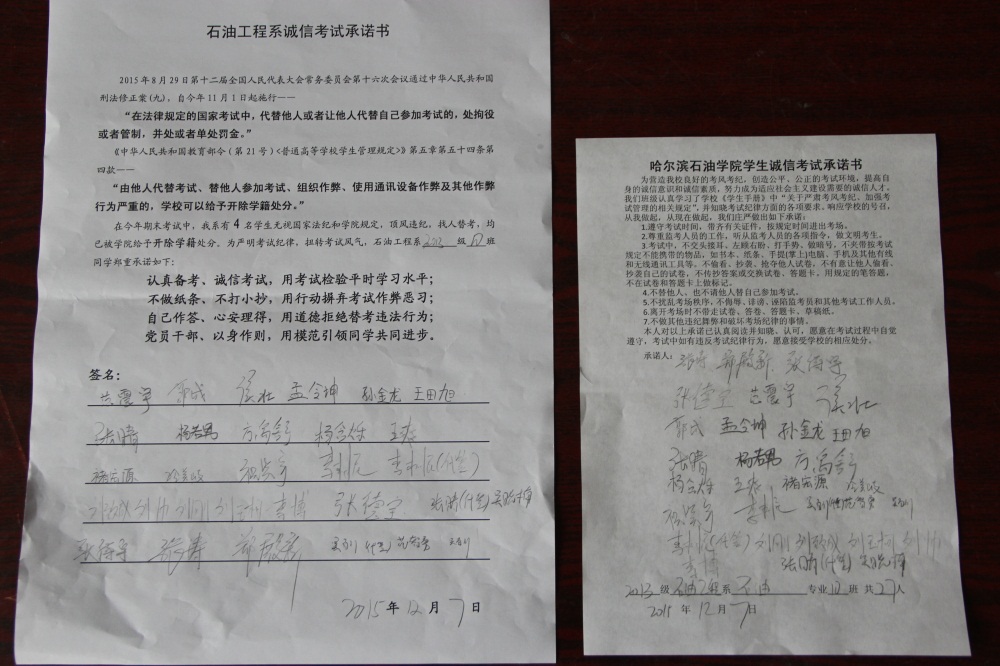 石油工程系诚信考试承诺书
2015年8月29日第十二届全国人民代表大会常务委员会第十六次会议通过中华人民共和国
刑法修正案(九)，自今年11月1日起施行——
“在法律规定的国家考试中，代替他人或者让他人代替自己参加考试的，处拘役
或者管制，并处或者单处罚金。”
《中华人民共和国教育部令（第21号）<普通高等学校学生管理规定>》第五章第五十四条第
四款——
“由他人代替考试、替他人参加考试、组织作弊、使用通讯设备作弊及其他作弊
行为严重的，学校可以给予开除学籍处分。”
在今年期末考试中，我系有4名学生无视国家法纪和学院规定，顶风违纪，找人替考，均
已被学院给予开除学籍处分。为严明考试纪律，扭转考试风气，石油工程系2013级12班
同学郑重承诺如下：
认真备考、诚信考试，用考试检验平时学习水平；
不做纸条、不打小抄，用行动摒弃考试作弊恶习；
自己作答、心安理得，用道德拒绝替考违法行为；
党员干部、以身作则，用模范引领同学共同进步。
签名：
孟令坤 孙金龙 王田旭
张晴 杨若男
张德宝 张晴(代签)
2015年12月7日
哈尔滨石油学院学生诚信考试承诺书
为营造我校良好的考风考纪，创造公平、公正的考试环境，提高自
身的诚信意识和诚信素质，努力成为适应社会主义建设需要的诚信人才，
我们班级认真学习了学校《学生手册》中“关于严肃考风考纪，加强考
试管理的相关规定”，并知晓考试纪律方面的各项要求，响应学校的号召，
从我做起，从现在做起，我们庄严做出如下承诺：
1.遵守考试时间，带齐有关证件，按规定时间进出考场。
2.尊重监考人员的工作，听从监考人员的各项指令，做文明考生。
3.考试中，不交头接耳、左顾右盼、打手势、做暗号，不夹带按考试
规定不能携带的物品，如书本、纸条、手提(掌上)电脑、手机及其他有线
和无线通讯工具等，不偷看、抄袭、抢夺他人试卷，不有意让他人偷看、
抄袭自己的试卷，不传抄答案或交换试卷、答题卡，用规定的笔答题，
不在试卷和答题卡上做标记。
4.不替他人、也不请他人替自己参加考试。
5.不扰乱考场秩序，不侮辱、诽谤、诬陷监考员和其他考试工作人员。
6.离开考场时不带走试卷、答卷、答题卡、草稿纸。
7.不做其他违纪舞弊和破坏考场纪律的事情。
本人对以上承诺已认真阅读并知晓、认可，愿意在考试过程中自觉
遵守，考试中如有违反考试纪律行为，愿意接受学校的相应处分。
承诺人：
张德宝
孟令坤 孙金龙 王田旭
张晴 杨若男
张晴(代签)
2013级 石油工程系 专业12班 共27人
2015年12月7日